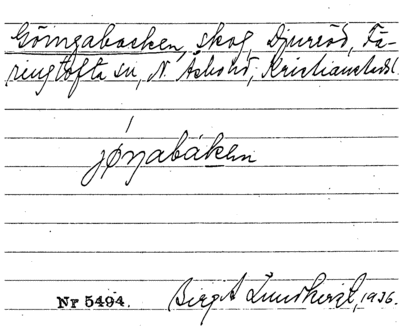 Göingabacken, skog, Djuröd, Fä-
ringtofta sn, N. Åsbo hd, Kristianstads l.
jøŋabákен
Nr 5494. Birgit Lundbergh, 1936.